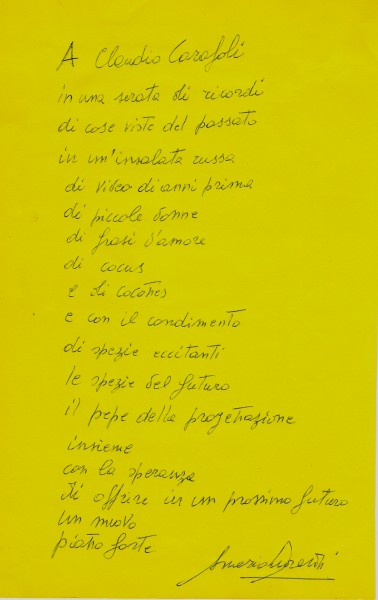 A Claudio Carafoli
in una serata di ricordi
di cose viste del passato
in un'insalata russa
di video di anni prima
di piccole donne
di frasi d'amore
di cocus
e di cocottes
e con il condimento
di spezie eccitanti
le spezie del futuro
il pepe della progettazione
insieme
con la speranza
di offrire in un prossimo futuro
un nuovo
piatto forte